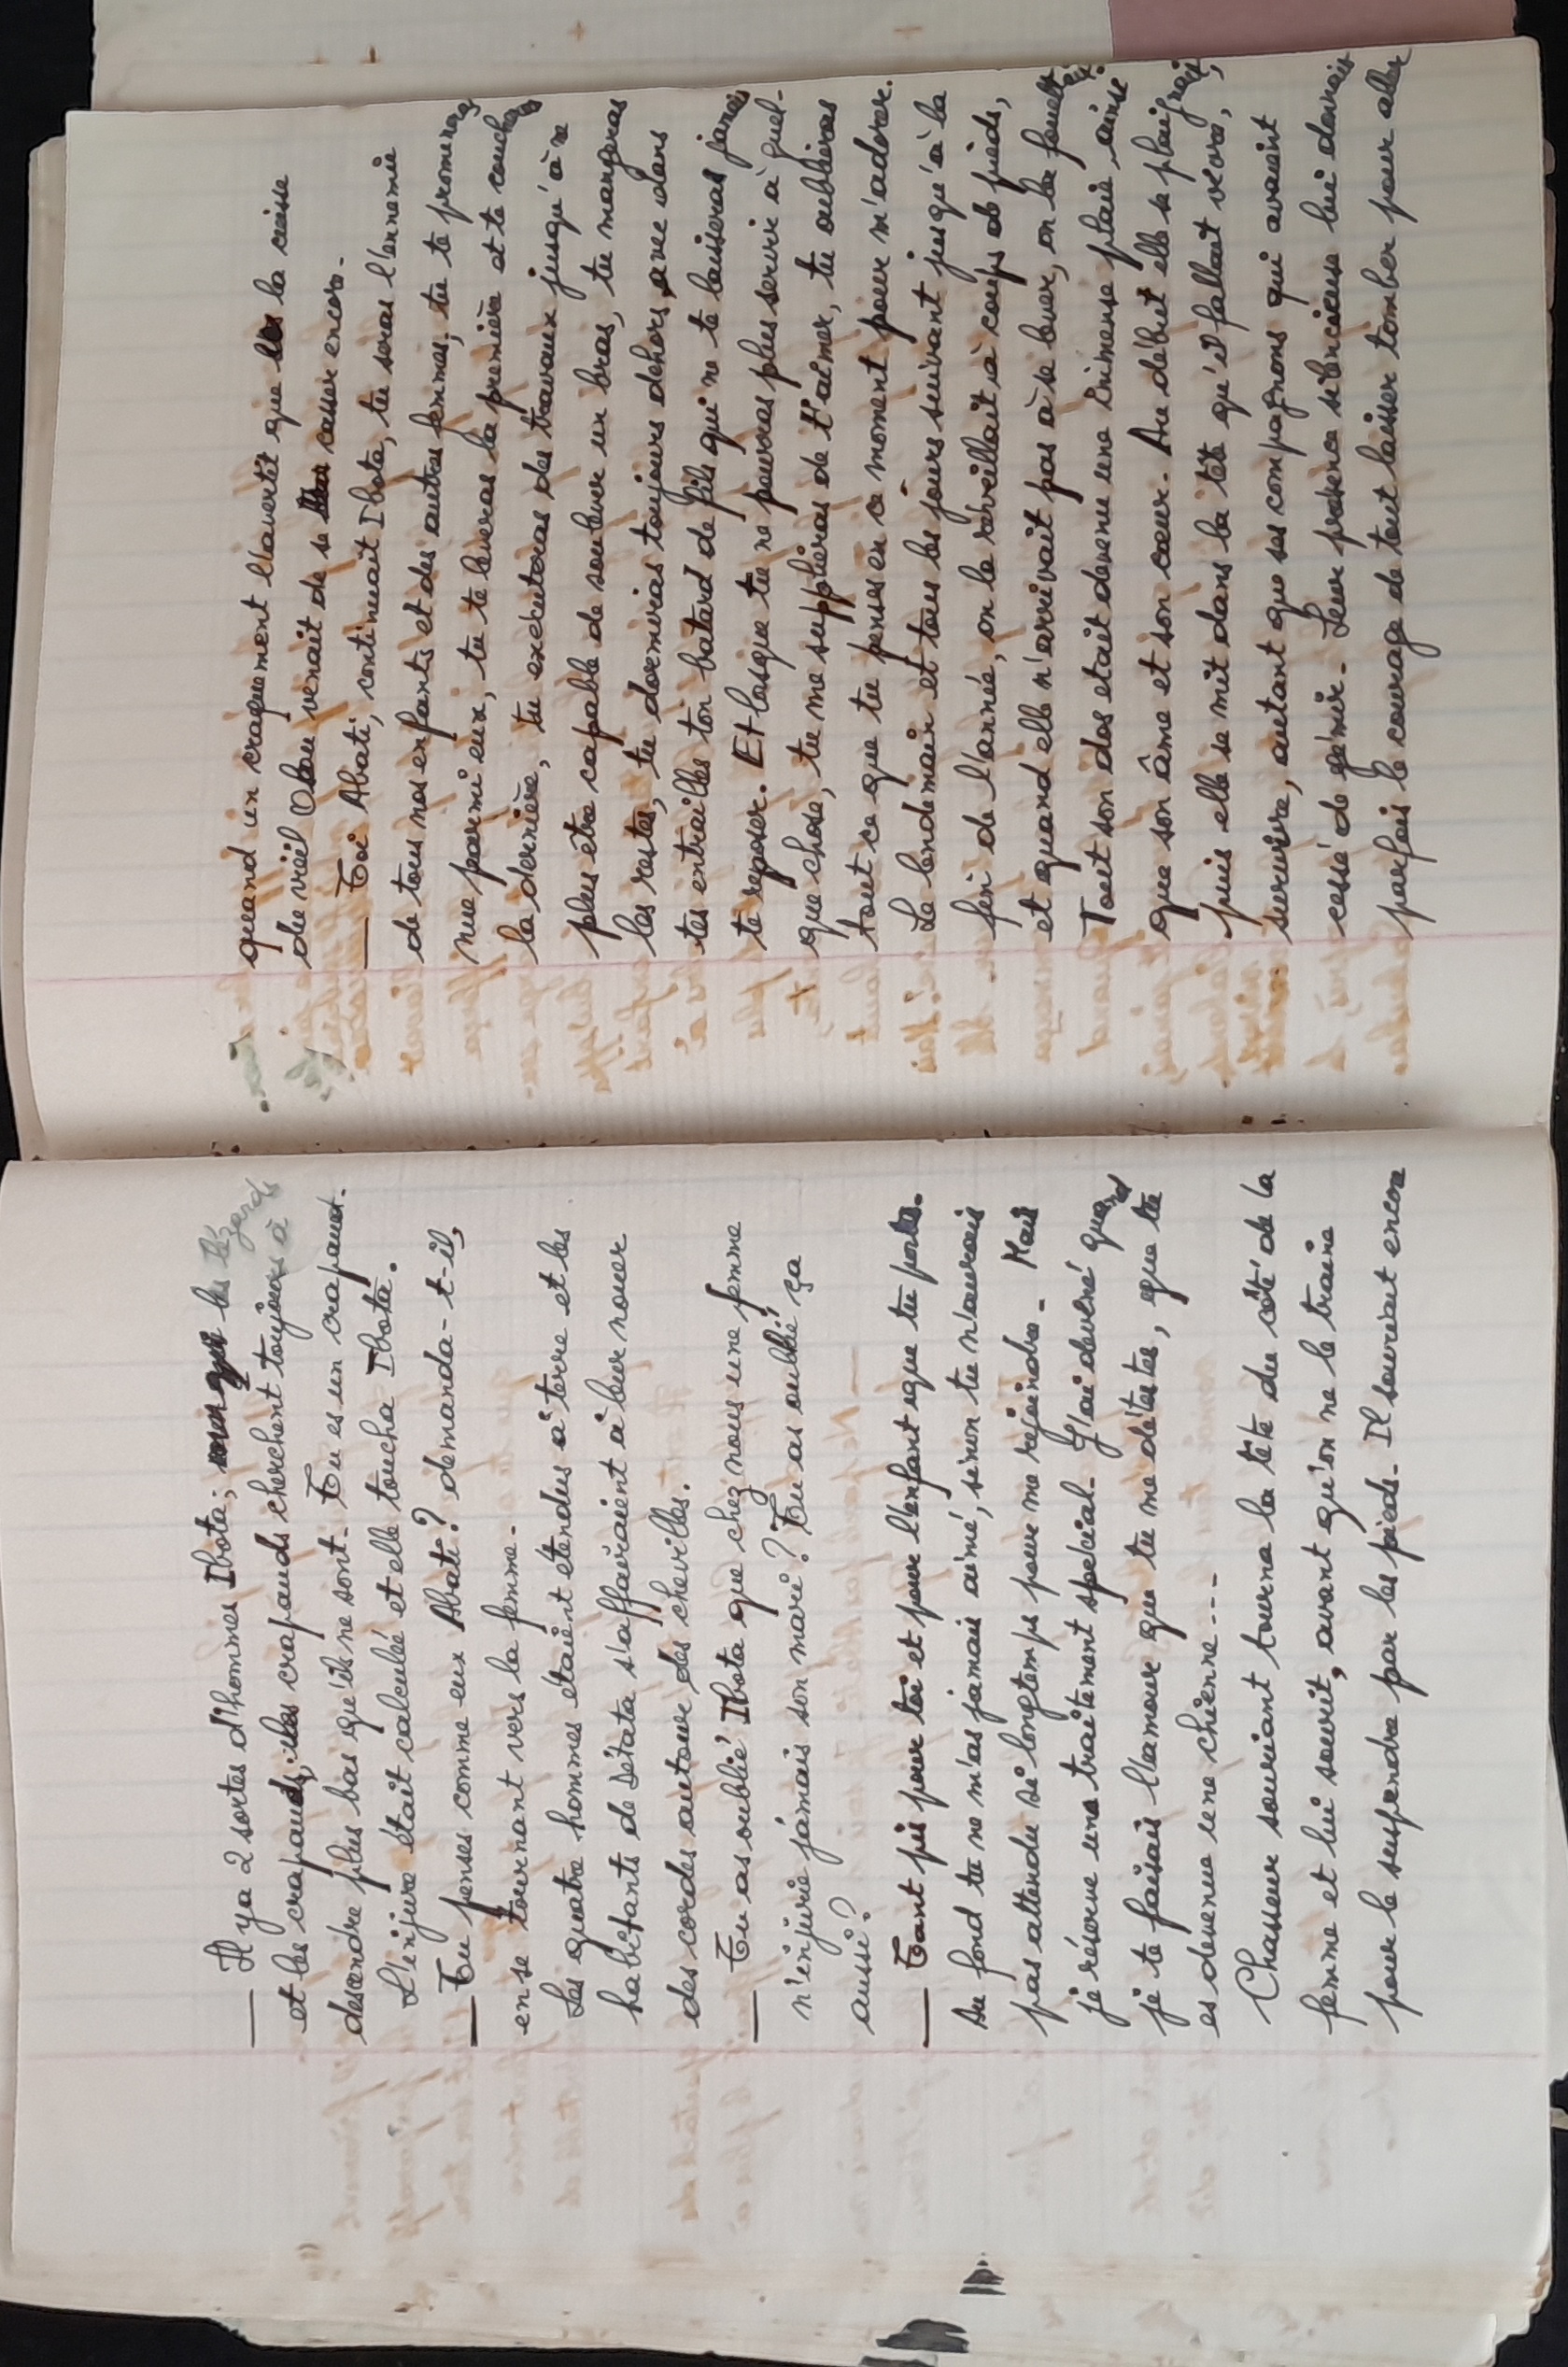 — Il y a 2 sortes d'hommes Ibota; les lézards
et les crapauds, les crapauds cherchent toujours à
descendre plus bas qu'ils ne sont. Tu es un crapaud.
L'injure était calculée et elle toucha Ibota.
— Tu penses comme eux Abati? demanda-t-il,
en se tournant vers la femme.
Les quatre hommes étaient étendus à terre et les
habitants de Détata s'affairaient à leur nouer
des cordes autour des chevilles.
— Tu as oublié Ibota que chez nous une femme
n'injurie jamais son mari? Tu as oublié ça
aussi?
— Tant pis pour toi et pour l'enfant que tu portes.
Au fond tu ne m'as jamais aimé, sinon tu n'aurais
pas attendu si longtemps pour me rejoindre. Mais
je réserve un traitement spécial. J'ai deviné quand
je te faisais l'amour que tu me détestes, que tu
es devenue une chienne...
Chasseur souriant tourna la tête du côté de la
femme et lui sourit, avant qu'on ne le traîne
pour le suspendre par les pieds. Il souriait encore
quand un craquement l'avertit que la cuisse
du vieil venait de se casser encore.
— Toi Abati, continuait Ibota, tu seras l'ennemie
de tous nos enfants et des autres femmes; tu te promeneras
nue parmi eux, tu te leveras la première et te coucheras
la dernière, tu executeras des travaux jusqu'à ne
plus être capable de soulever un bras, tu mangeras
les restes, tu dormiras toujours dehors avec dans
tes entrailles ton batard de fils qui ne te laisseras jamais
te reposer. Et lorsque tu ne pourras plus servir à quel-
que chose, tu me supplieras de t'aimer, tu oublieras
tout ce que tu penses en ce moment pour m'adorer.
Le lendemain et tous les jours suivant jusqu'à la
fin de l'année, on le réveillait à coups de pieds,
et quand elle n'arrivait pas à se lever, on la
Tout son dos etait devenu une immense plaie ainsi
que son âme et son cœur. Au début elle se plaignait,
puis elle se mit dans la tête qu'il fallait vivre,
survivre, autant que ses compagnons qui avaient
cessé de gémir. Leur présence silencieuse lui donnait
parfois le courage de tout laisser tomber pour aller